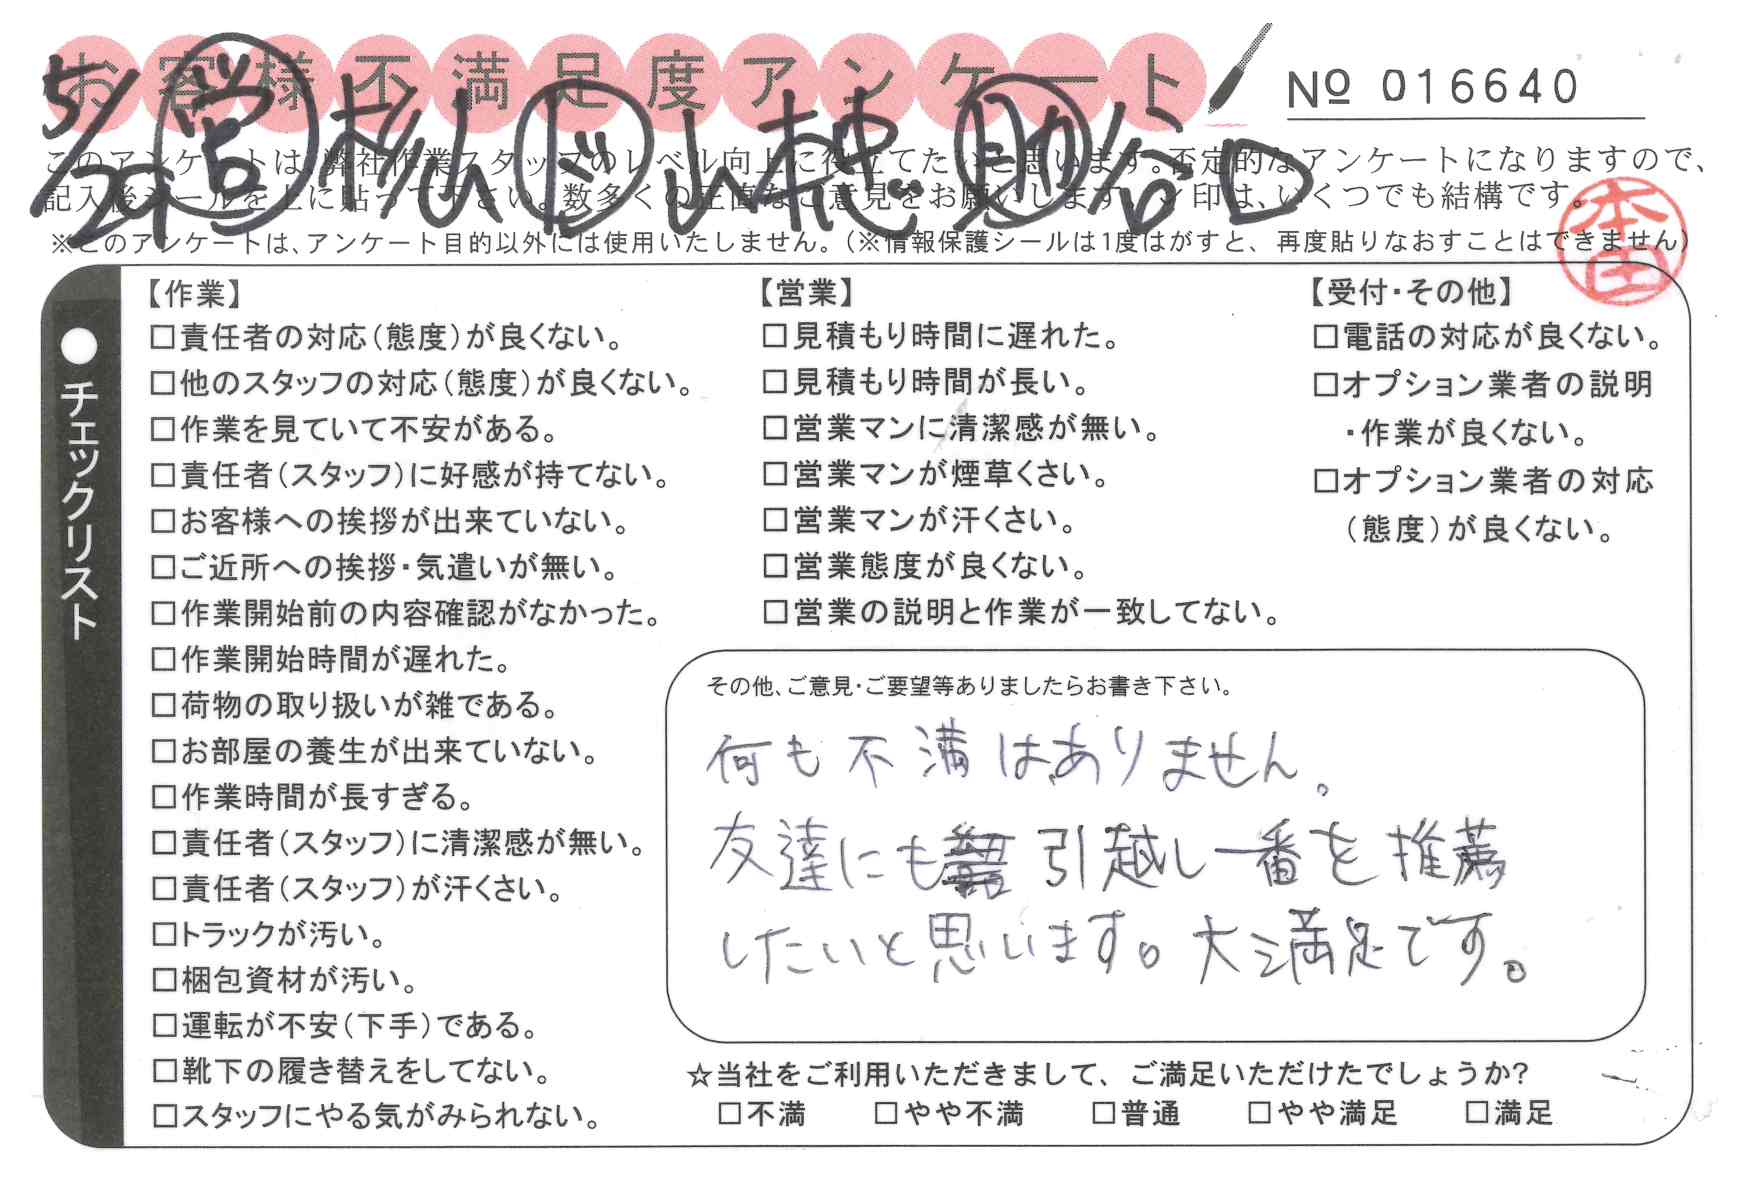 お客様不満足度アンケート
№ 016640
5/29 営 ド 山桃 助
このアンケートは、弊社作業スタッフのレベル向上に役立てたいと思います。否定的なアンケートになりますので、
記入後シールを上に貼って下さい。数多くの正直なご意見をお願いします。レ印は、いくつでも結構です。
※このアンケートは、アンケート目的以外には使用いたしません。(※情報保護シールは1度はがすと、再度貼りなおすことはできません)
本田
●チェックリスト
【作業】
□責任者の対応(態度)が良くない。
□他のスタッフの対応(態度)が良くない。
□作業を見ていて不安がある。
□責任者(スタッフ)に好感が持てない。
□お客様への挨拶が出来ていない。
□ご近所への挨拶・気遣いが無い。
□作業開始前の内容確認がなかった。
□作業開始時間が遅れた。
□荷物の取り扱いが雑である。
□お部屋の養生が出来ていない。
□作業時間が長すぎる。
□責任者(スタッフ)に清潔感が無い。
□責任者(スタッフ)が汗くさい。
□トラックが汚い。
□梱包資材が汚い。
□運転が不安(下手)である。
□靴下の履き替えをしてない。
□スタッフにやる気がみられない。
【営業】
□見積もり時間に遅れた。
□見積もり時間が長い。
□営業マンに清潔感が無い。
□営業マンが煙草くさい。
□営業マンが汗くさい。
□営業態度が良くない。
□営業の説明と作業が一致してない。
【受付・その他】
□電話の対応が良くない。
□オプション業者の説明
・作業が良くない。
□オプション業者の対応
(態度)が良くない。
その他、ご意見・ご要望等ありましたらお書き下さい。
何も不満はありません。
友達にも引越し一番を推薦
したいと思います。大満足です。
☆当社をご利用いただきまして、ご満足いただけたでしょうか?
□不満 □やや不満 □普通 □やや満足 □満足